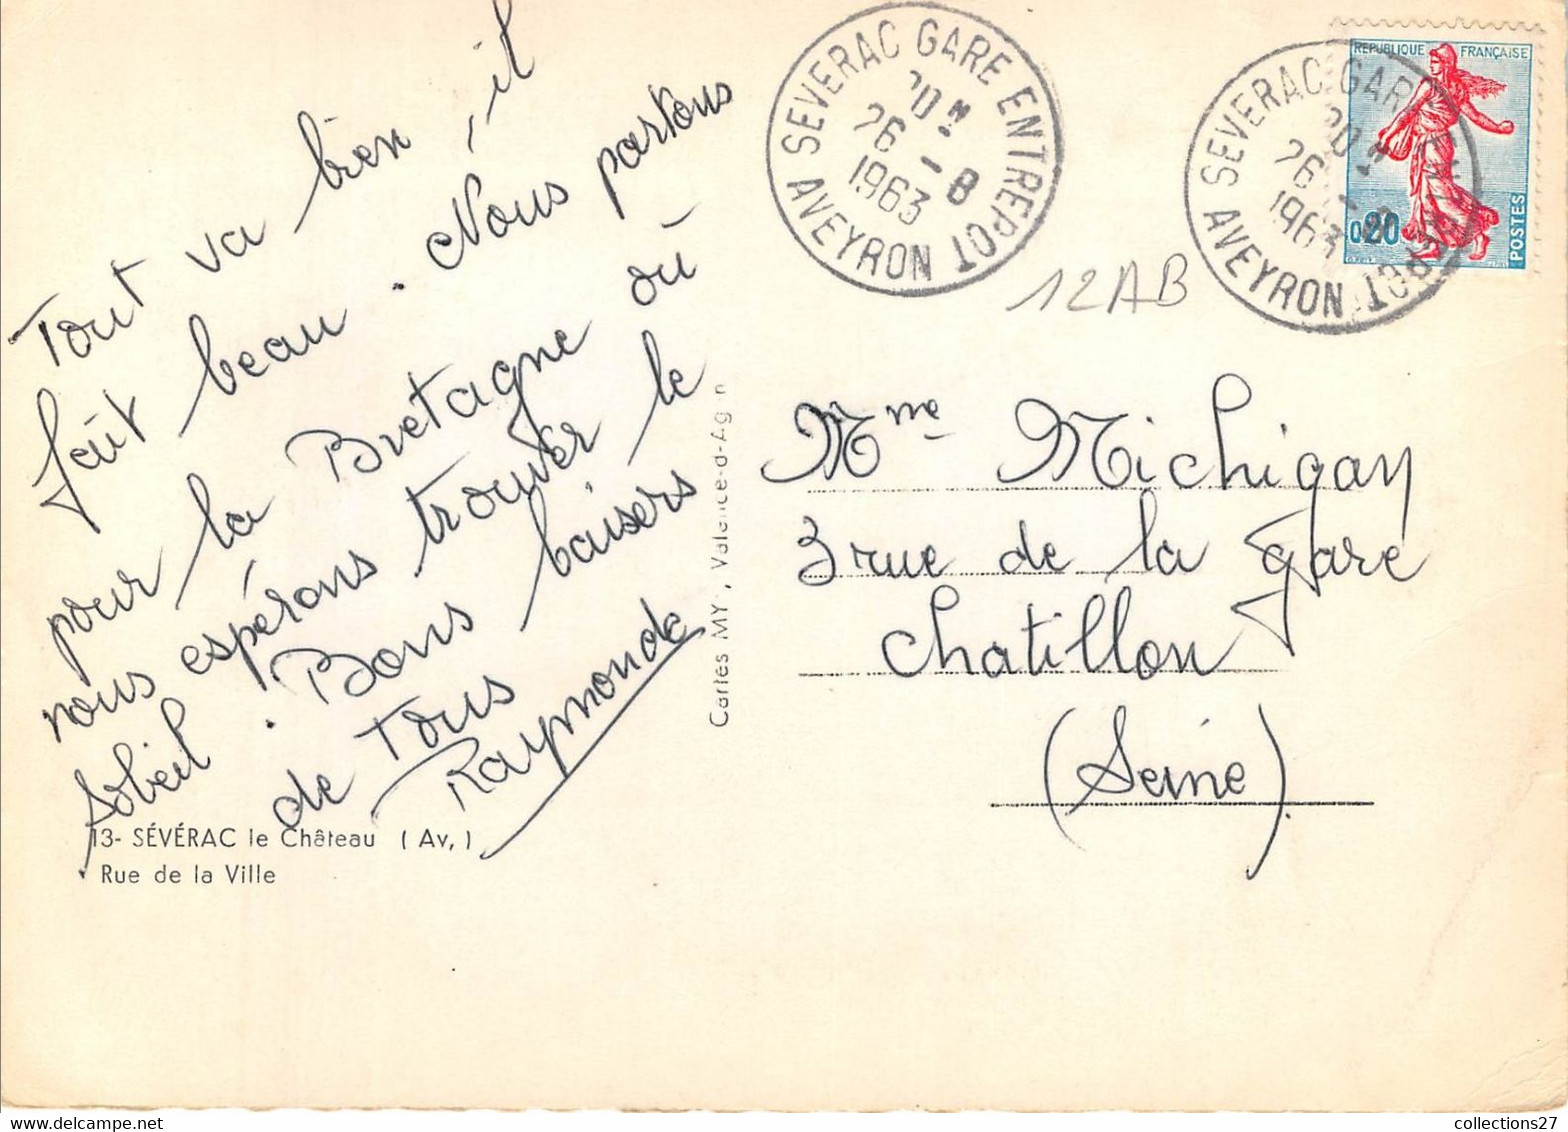 Tout va bien, il
fait beau. Nous partons
pour la Bretagne où
nous espérons trouver le
soleil. Bons baisers
de tous
Raymonde
13- SÉVÉRAC le Château (Av.)
Rue de la Ville
Cartes MY, Valence-d-Agen
SEVERAC GARE ENTREPOT
20H
26 -8
1963
AVEYRON
SEVERAC GARE ENTREPOT
20H
26 -8
1963
AVEYRON
REPUBLIQUE FRANÇAISE
0,20
POSTES
12AB
Mme Michigay
3 rue de la gare
Chatillon
(Seine)
collections27